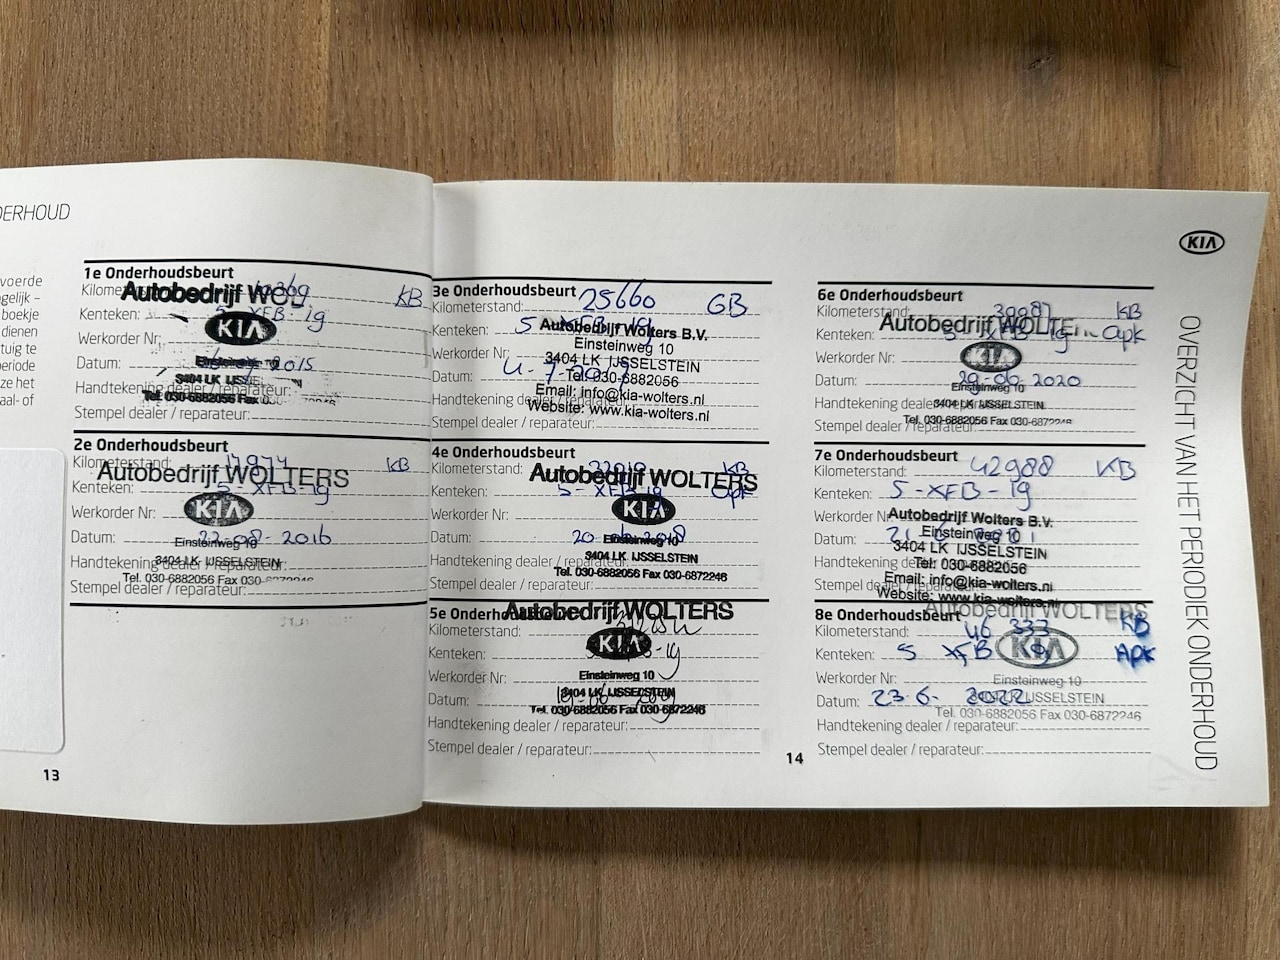 DERHOUD
voerde
gelijk –
boekje
dienen
tuig te
periode
ze het
aal- of
13
1e Onderhoudsbeurt
KB
Autobedrijf WOL
Kenteken: 5-XFB-19
KIA
Werkorder Nr:
Datum: 2015
3404 LK IJSSE
Handtekening dealer / reparateur:
Tel. 030-6882056 Fax 0
Stempel dealer / reparateur:
2e Onderhoudsbeurt
Kilometerstand: KB
Autobedrijf WOLTERS
Kenteken: 5-XFB-19
KIA
Werkorder Nr:
Datum: 22-08-2016
Einsteinweg 10
3404 LK IJSSELSTEIN
Handtekening dealer / reparateur:
Tel. 030-6882056 Fax 030-6872246
Stempel dealer / reparateur:
3e Onderhoudsbeurt
Kilometerstand: 25660 GB
Kenteken: 5-XFB-19
Autobedrijf Wolters B.V.
Einsteinweg 10
Werkorder Nr:
3404 LK IJSSELSTEIN
Datum:
Tel: 030-6882056
Email: info@kia-wolters.nl
Handtekening dealer / reparateur:
Website: www.kia-wolters.nl
Stempel dealer / reparateur:
4e Onderhoudsbeurt
Kilometerstand: KB
Autobedrijf WOLTERS
Kenteken: 5-XFB-19 apk
KIA
Werkorder Nr:
Datum: 20-6-2018
Einsteinweg 10
3404 LK IJSSELSTEIN
Handtekening dealer / reparateur:
Tel. 030-6882056 Fax 030-6872246
Stempel dealer / reparateur:
5e Onderhoudsbeurt
Autobedrijf WOLTERS
Kilometerstand:
KIA
Kenteken:
Werkorder Nr:
Einsteinweg 10
3404 LK IJSSELSTEIN
Datum:
Tel. 030-6882056 Fax 030-6872246
Handtekening dealer / reparateur:
Stempel dealer / reparateur:
14
6e Onderhoudsbeurt
Kilometerstand: 39087 KB
Autobedrijf WOLTERS
Kenteken: 5-XFB-19 apk
KIA
Werkorder Nr:
Datum: 29-06-2020
Einsteinweg 10
3404 LK IJSSELSTEIN
Handtekening dealer / reparateur:
Tel. 030-6882056 Fax 030-6872246
Stempel dealer / reparateur:
7e Onderhoudsbeurt
Kilometerstand: 42988 KB
Kenteken: 5-XFB-19
Werkorder Nr:
Autobedrijf Wolters B.V.
Einsteinweg 10
Datum: 21-6-2021
3404 LK IJSSELSTEIN
Tel: 030-6882056
Handtekening dealer / reparateur:
Email: info@kia-wolters.nl
Stempel dealer / reparateur:
Website: www.kia-wolters.nl
Autobedrijf WOLTERS
8e Onderhoudsbeurt
Kilometerstand: 46 333 KB
Kenteken: 5 XFB 19 APK
KIA
Werkorder Nr:
Einsteinweg 10
Datum: 23-6-2022
3404 LK IJSSELSTEIN
Tel. 030-6882056 Fax 030-6872246
Handtekening dealer / reparateur:
Stempel dealer / reparateur:
KIA
OVERZICHT VAN HET PERIODIEK ONDERHOUD